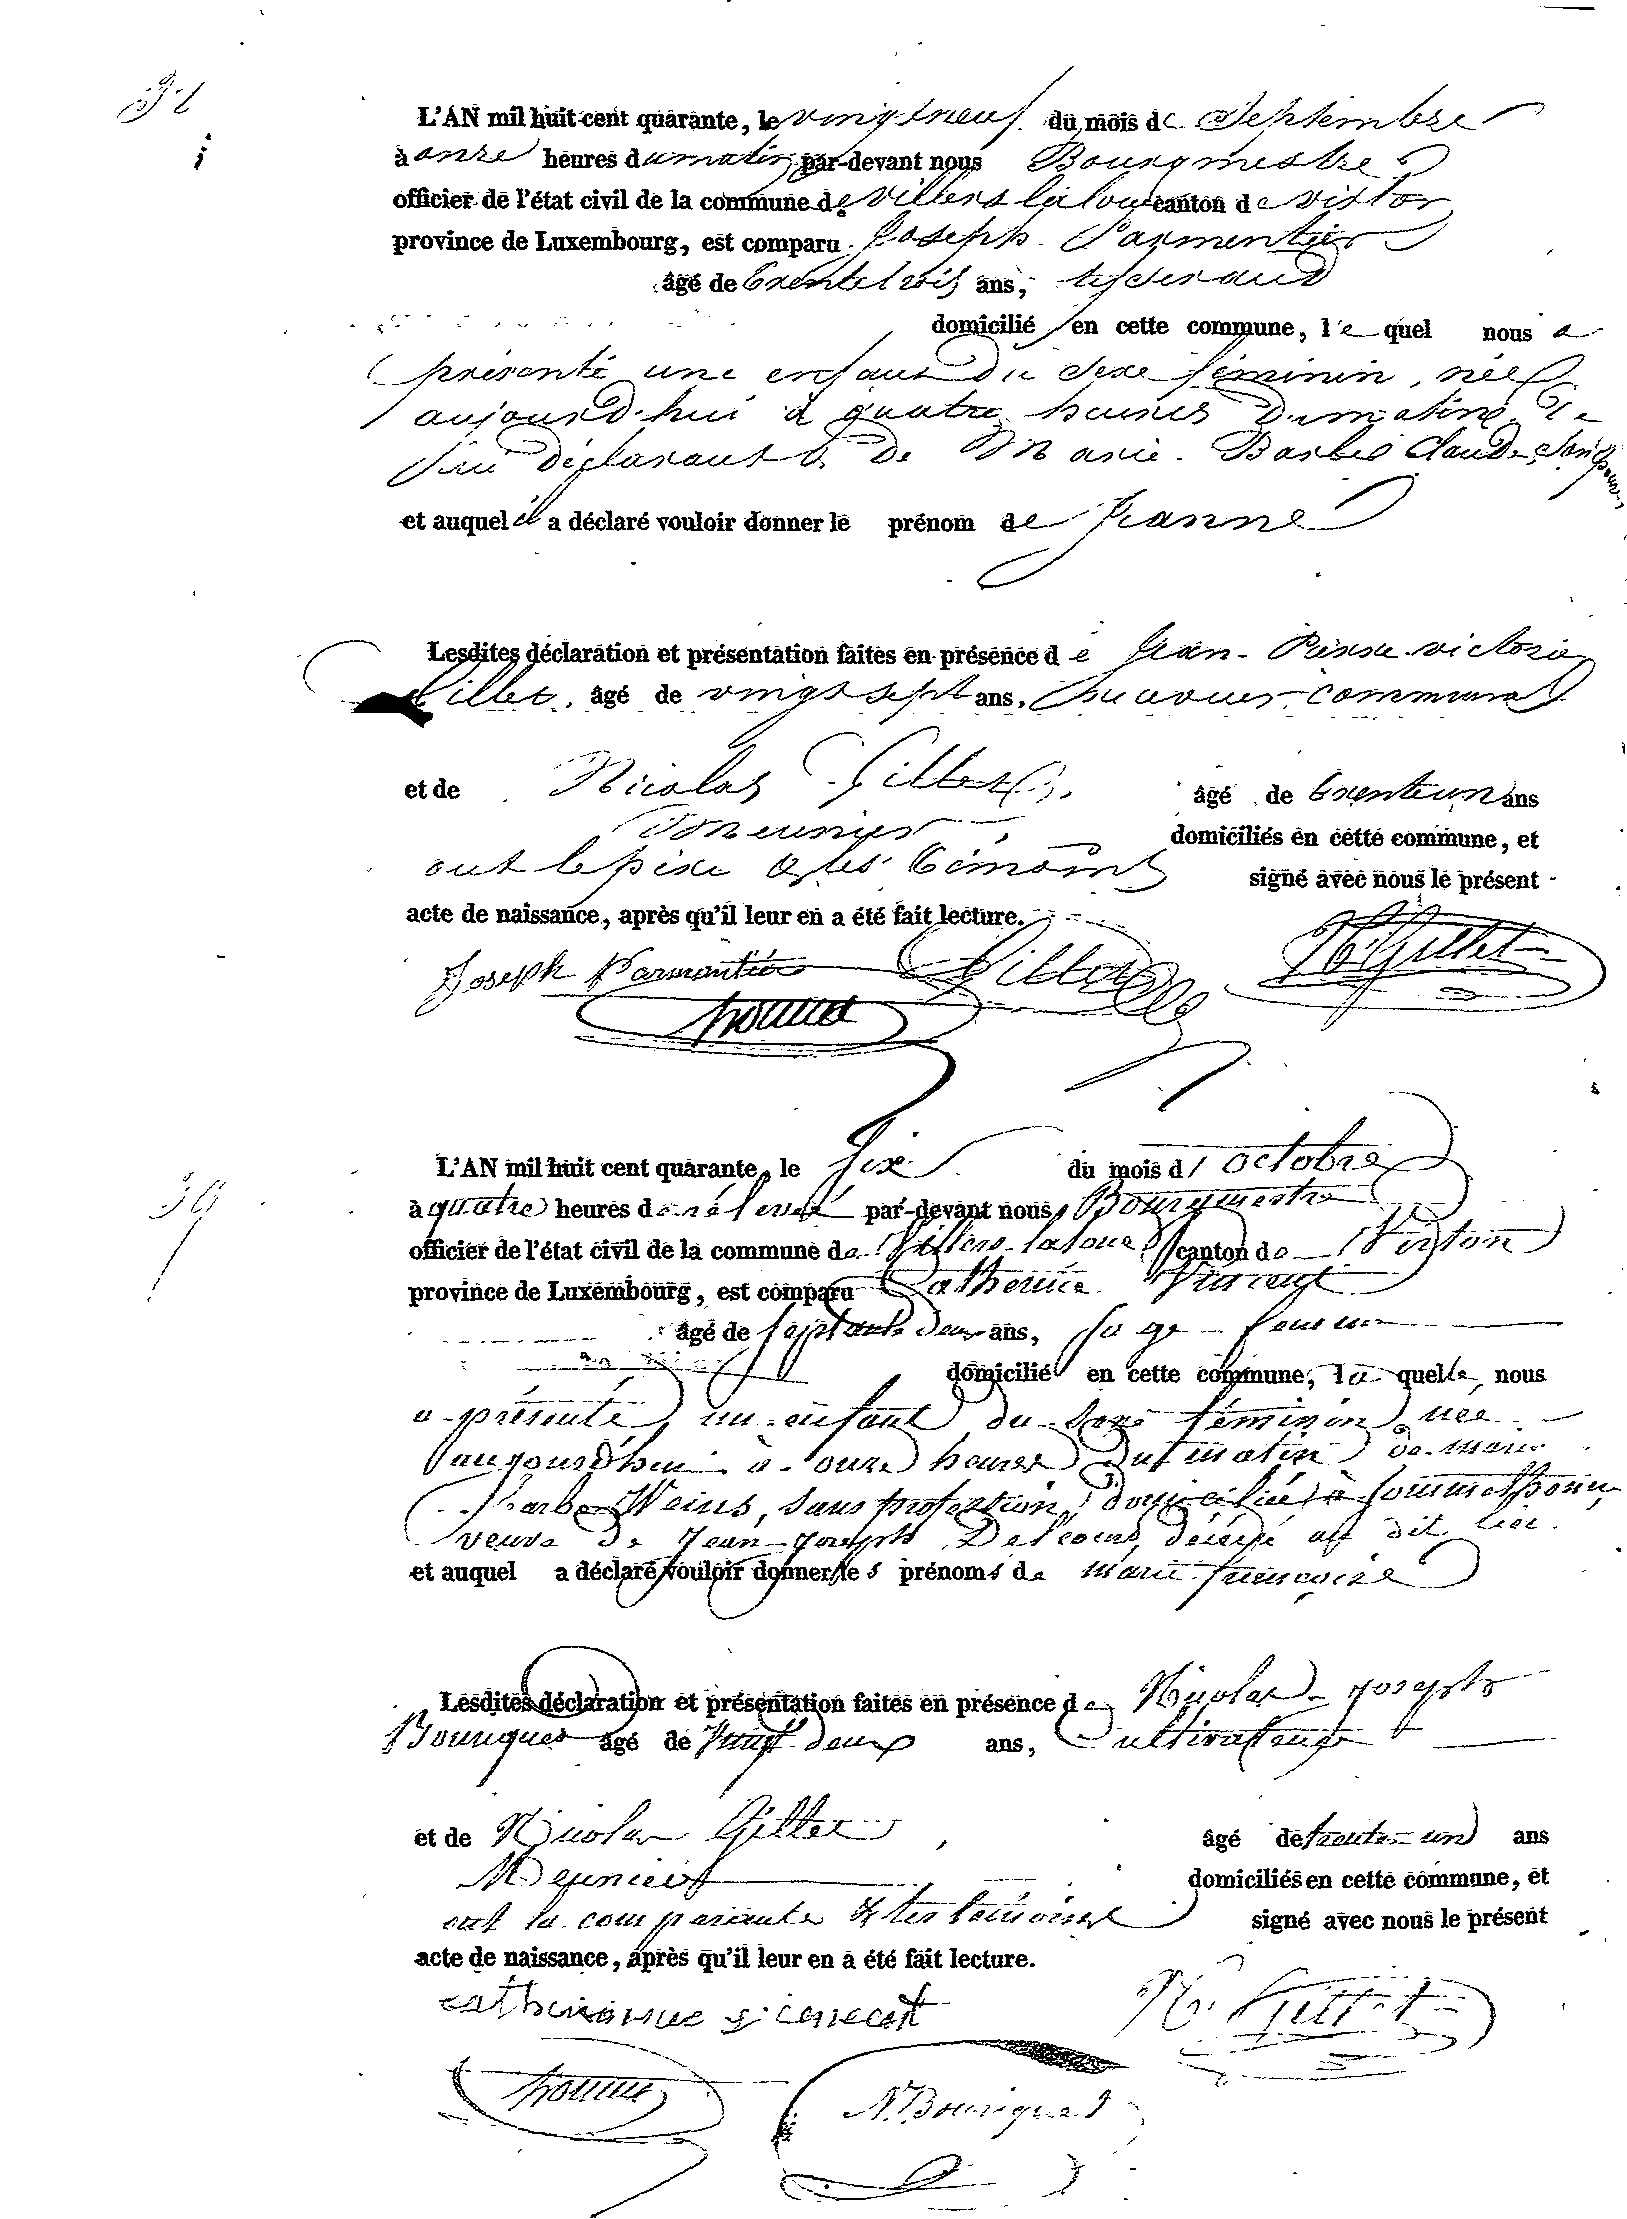 L'AN mil huit cent quarante, le vingt neuf du mois de Septembre
à onze heures du matin par-devant nous Bourgmestre
officier de l'état civil de la commune de Villers la loue canton de virton
province de Luxembourg, est comparu Joseph Parmentier
âgé de trente trois ans, tisserand
domicilié en cette commune, le quel nous a
présenté une enfant du sexe féminin, née
aujourd'hui à quatre heures du matin, de
lui déclarant & de Marie Barbe Claude, son épouse
et auquel il a déclaré vouloir donner le prénom de Jeanne
Lesdites déclaration et présentation faites en présence de Jean-Pierre victorin
Gillet, âgé de vingt sept ans, receveur communal
et de Nicolas Gillet, âgé de trente un ans
meunier domiciliés en cette commune, et
ont le père & les témoins signé avec nous le présent
acte de naissance, après qu'il leur en a été fait lecture.
Joseph Parmentier Gillet N. Gillet
39
L'AN mil huit cent quarante, le six du mois d'octobre
à quatre heures de rélevée par-devant nous Bourgmestre
officier de l'état civil de la commune de Villers-laloue canton de Virton
province de Luxembourg, est comparu Catherine Vincent
âgé de septante deux ans, sage-femme
domicilié en cette commune, la quelle, nous
a présenté un enfant du sexe féminin née
aujourd'hui à onze heures du matin de marie
barbe Weins, sans profession, domiciliée à sommethonne,
veuve de Jean-joseph Delcourt, décédé au dit lieu.
et auquel a déclaré vouloir donner les prénoms de marie françoise
Lesdites déclaration et présentation faites en présence de Nicolas-joseph
Bourigues âgé de vingt deux ans, Cultivateur
et de Nicolas Gillet, âgé de trente-un ans
Meunier domiciliés en cette commune, et
ont la comparante & les témoins signé avec nous le présent
acte de naissance, après qu'il leur en a été fait lecture.
N. Gillet
N. Bourigues